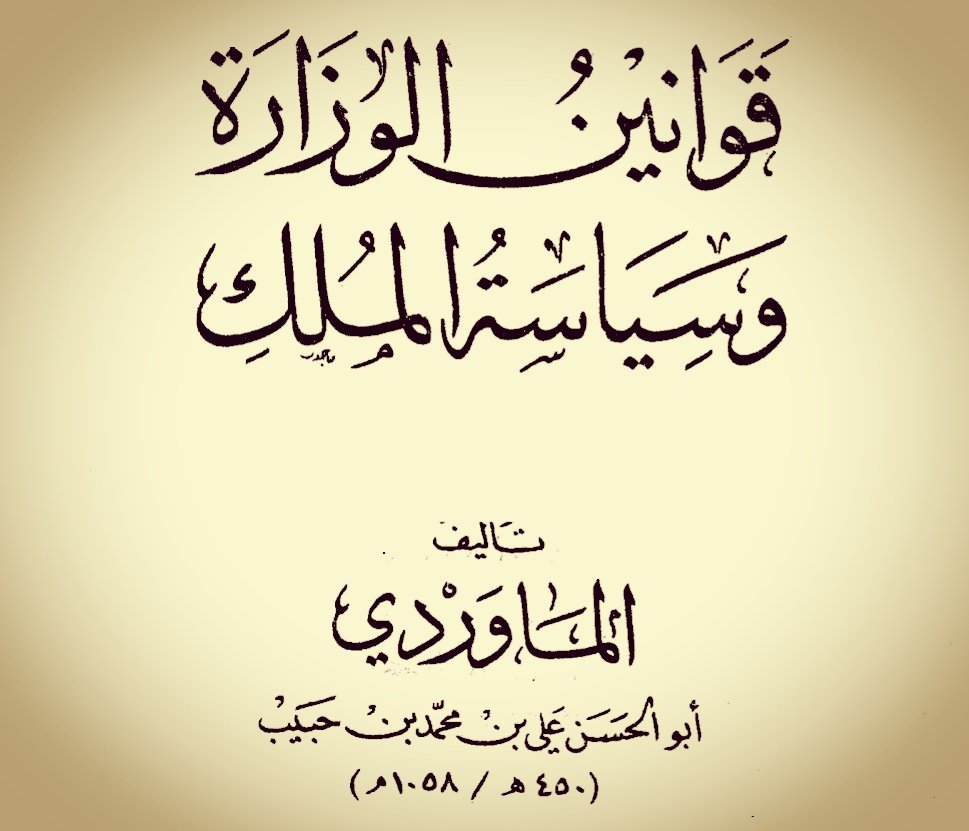 قَوَانِينُ الوِزَارَة
وَسِيَاسَةُ المُلكِ
تأليف
الماوَرْدي
أبو الحَسَن عَلي بنْ محمَّد بنْ حَبيبْ
(٤٥٠ هـ / ١٠٥٨م)